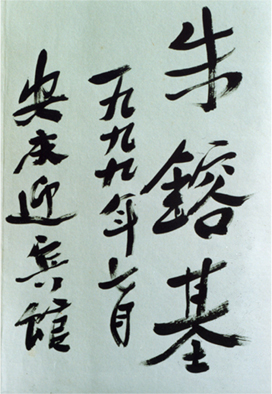 朱鎔基
一九九九年七月
安庆迎宾馆